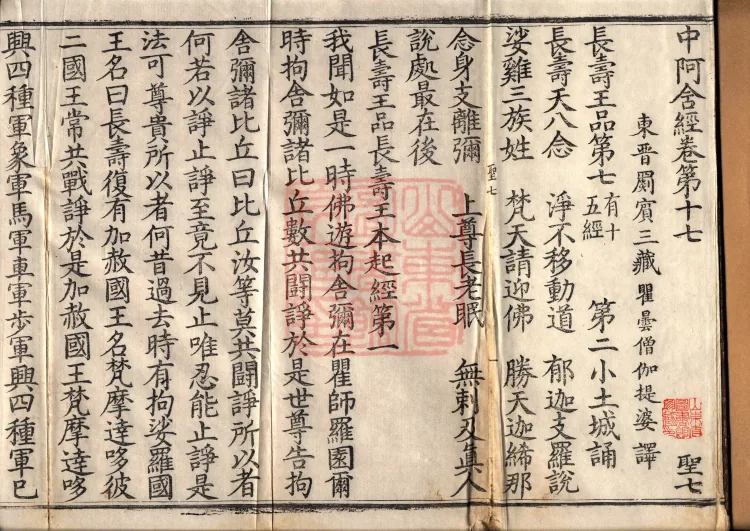 中阿含經卷第十七
聖七
東晉罽賓三藏瞿曇僧伽提婆譯
長壽王品第七有十五經 第二小土城誦
長壽天八念 淨不移動道 郁迦支羅說
娑雞三族姓 梵天請迎佛 勝天迦絺那
念身支離彌 上尊長老眠 無刺及真人
聖七
說處最在後
長壽王品長壽王本起經第一
我聞如是一時佛遊拘舍彌在瞿師羅園爾
時拘舍彌諸比丘數共鬪諍於是世尊告拘
舍彌諸比丘曰比丘汝等莫共鬪諍所以者
何若以諍止諍至竟不見止唯忍能止諍是
法可尊貴所以者何昔過去時有拘娑羅國
王名曰長壽復有加赦國王名梵摩達哆彼
二國王常共戰諍於是加赦國王梵摩達哆
興四種軍象軍馬軍車軍步軍興四種軍已